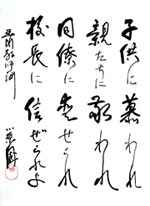 子供に慕われ
親たちに敬われ
同僚に愛せられ
校長に信ぜられよ